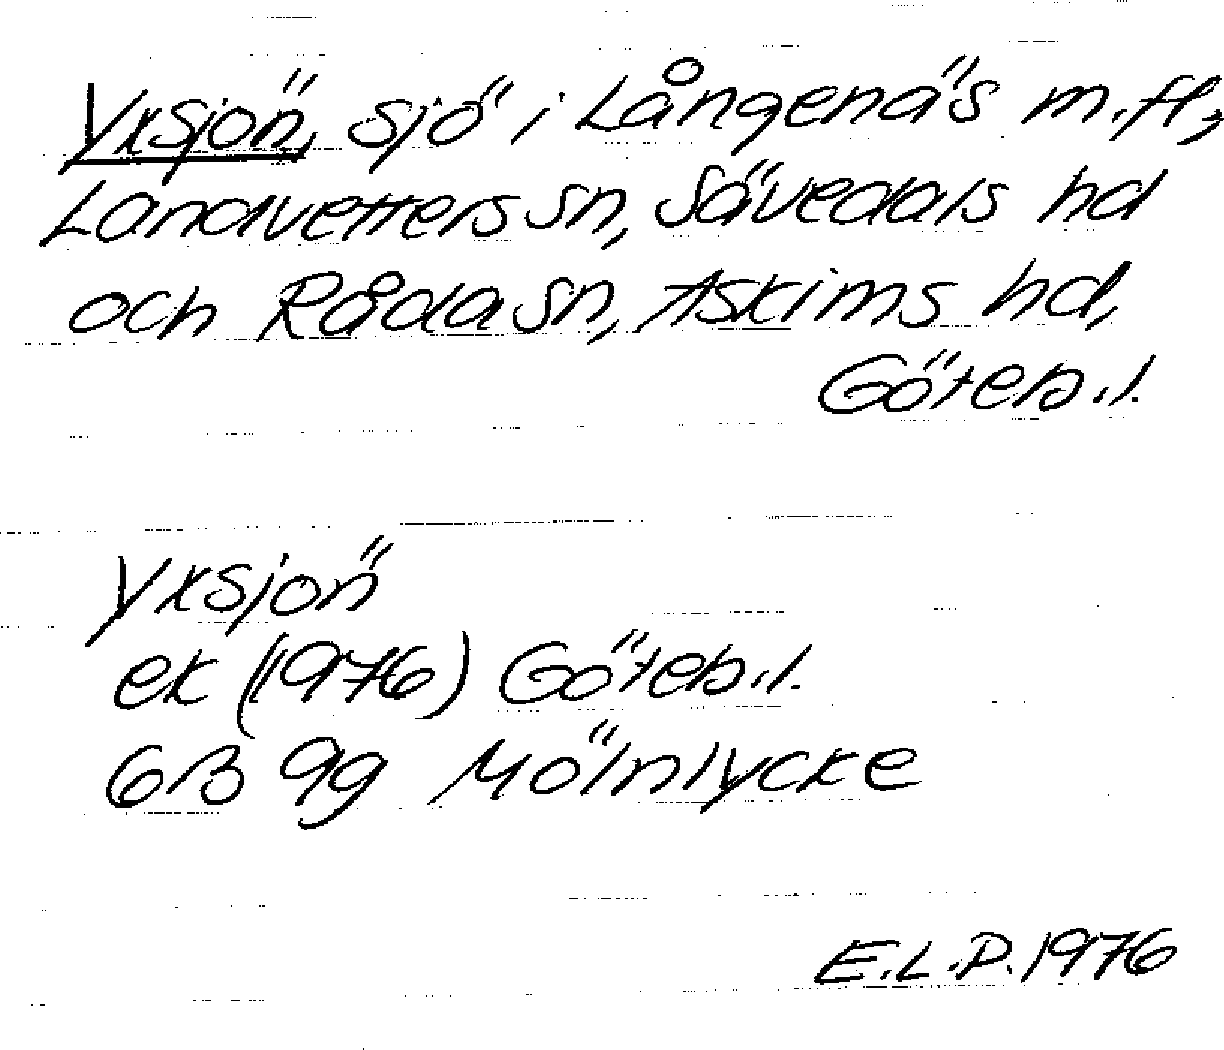 Yxsjön, sjö i Långenäs m.fl.,
Landvetters sn, Sävedals hd
och Råda sn, Askims hd,
Göteb.l.
Yxsjön
ek (1976) Göteb.l.
6B 9g Mölnlycke
E.L.P. 1976